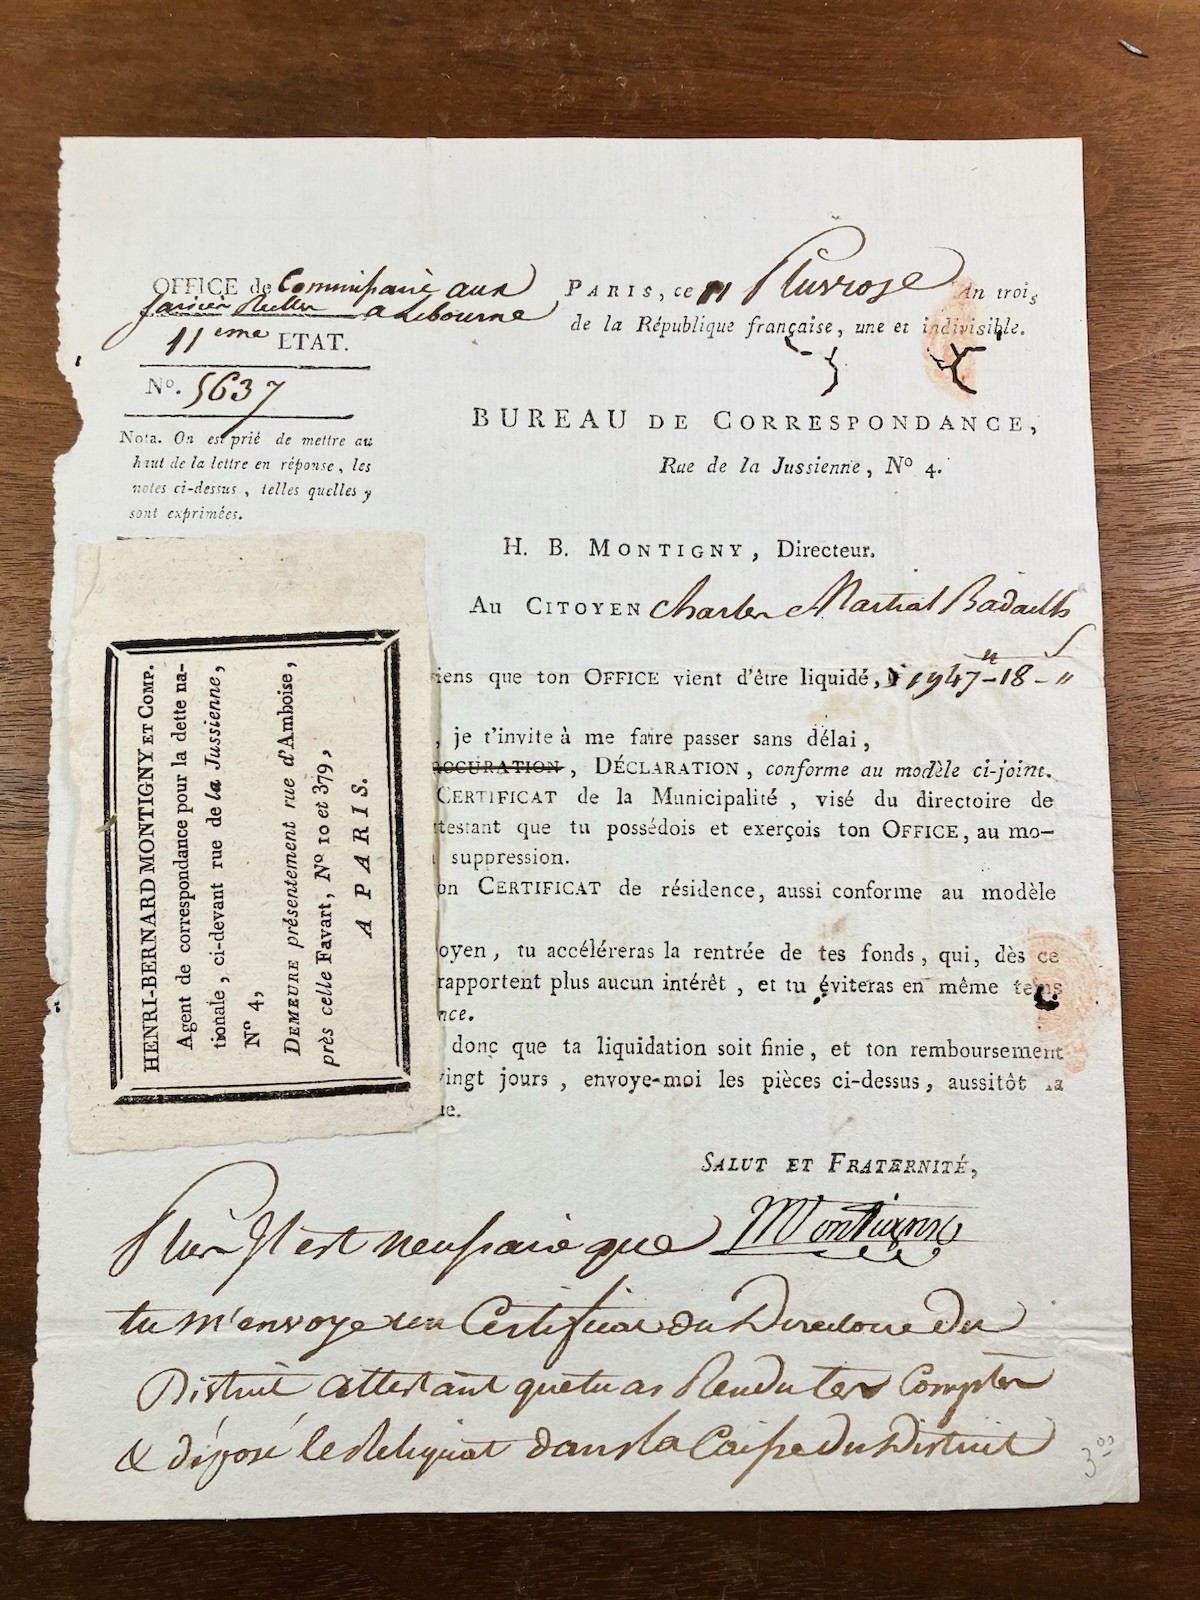 OFFICE de Commissaire aux
Saisies Réelles a Libourne
11eme ETAT.
No. 5637
Nota. On est prié de mettre au
haut de la lettre en réponse, les
notes ci-dessus, telles quelles y
sont exprimées.
PARIS, ce 11 Pluviose An trois
de la République française, une et indivisible.
BUREAU DE CORRESPONDANCE,
Rue de la Jussienne, No 4.
H. B. MONTIGNY, Directeur.
AU CITOYEN Charles Martial Badailh
iens que ton OFFICE vient d'être liquidé, 1947-18-"
, je t'invite à me faire passer sans délai,
ROCURATION, DÉCLARATION, conforme au modèle ci-joint.
CERTIFICAT de la Municipalité, visé du directoire de
testant que tu possédois et exerçois ton OFFICE, au mo-
suppression.
on CERTIFICAT de résidence, aussi conforme au modèle
oyen, tu accéléreras la rentrée de tes fonds, qui, dès ce
rapportent plus aucun intérêt, et tu éviteras en même tems
nce.
donc que ta liquidation soit finie, et ton remboursement
vingt jours, envoye-moi les pièces ci-dessus, aussitôt la
ue.
SALUT ET FRATERNITÉ,
Montigny
HENRI-BERNARD MONTIGNY ET COMP.
Agent de correspondance pour la dette na-
tionale, ci-devant rue de la Jussienne,
No 4,
DEMEURE présentement rue d'Amboise,
près celle Favart, No 10 et 379,
A PARIS.
Plus Il est necessaire que
tu m'envoye un Certificat du Directoire du
District attestant que tu as Rendu tes Comptes
& déposé le Reliquat dans la Caisse du District